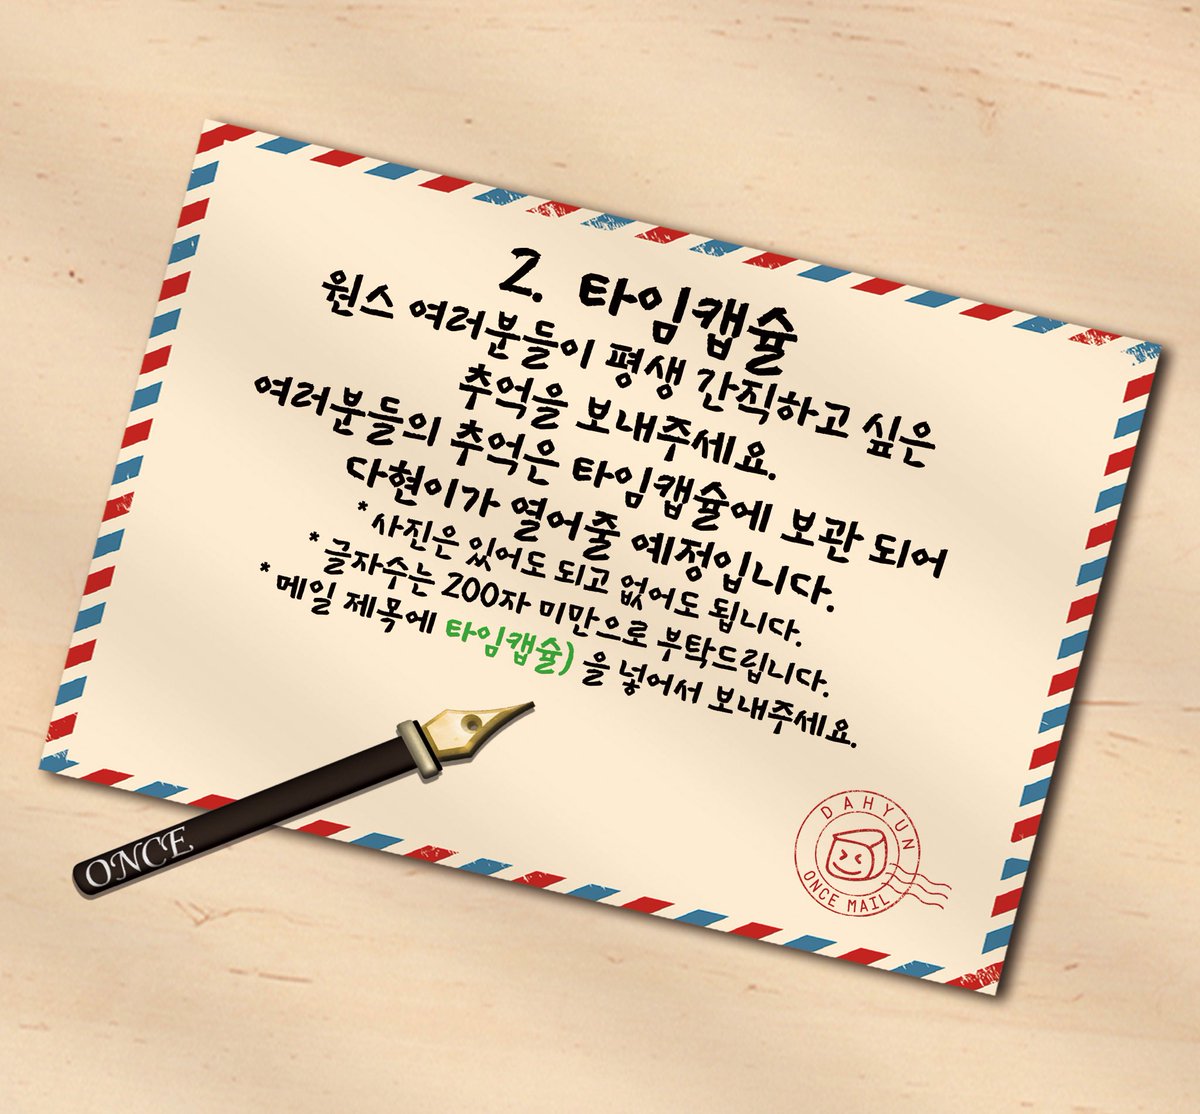 2. 타임캡슐
원스 여러분들이 평생 간직하고 싶은
추억을 보내주세요.
여러분들의 추억은 타임캡슐에 보관 되어
다현이가 열어줄 예정입니다.
* 사진은 있어도 되고 없어도 됩니다.
* 글자수는 200자 미만으로 부탁드립니다.
* 메일 제목에 타임캡슐) 을 넣어서 보내주세요.
ONCE
DAHYUN
ONCE MAIL